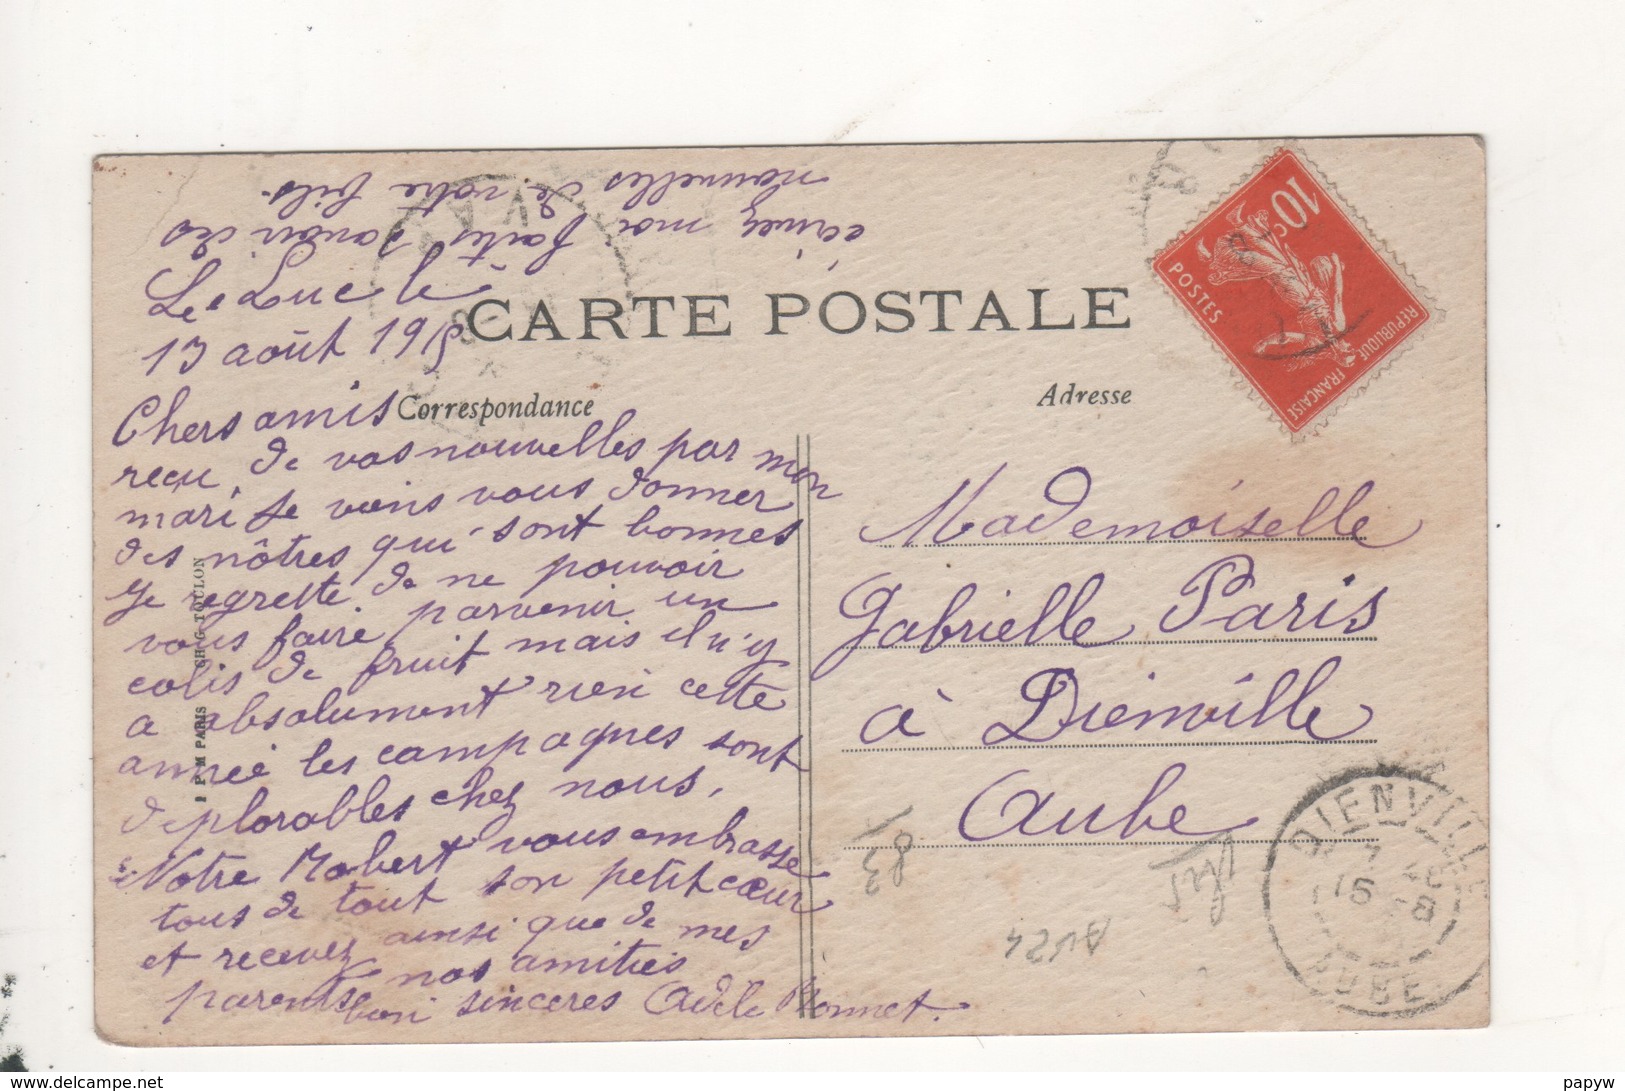 écrivez moi faites savoir des
nouvelles de votre fils.
Le Luc le
13 août 191
CARTE POSTALE
Correspondance
Adresse
Chers amis
reçu de vos nouvelles par mon
mari je viens vous donner
des nôtres qui sont bonnes
Je regrette de ne pouvoir
vous faire parvenir un
colis de fruit mais il n'y
a absolument rien cette
année les campagnes sont
deplorables chez nous.
Notre Robert vous embrasse
tous de tout son petit cœur
et recevez ainsi que de mes
parents nos amitiés
bien sinceres Adele Monnet.
Mademoiselle
Gabrielle Paris
à Dienville
Aube
10c
POSTES
REPUBLIQUE FRANÇAISE
DIENVILLE
15 -8
AUBE
I P M PARIS CH G TOULON
83
AV24
delcampe.net
papyw